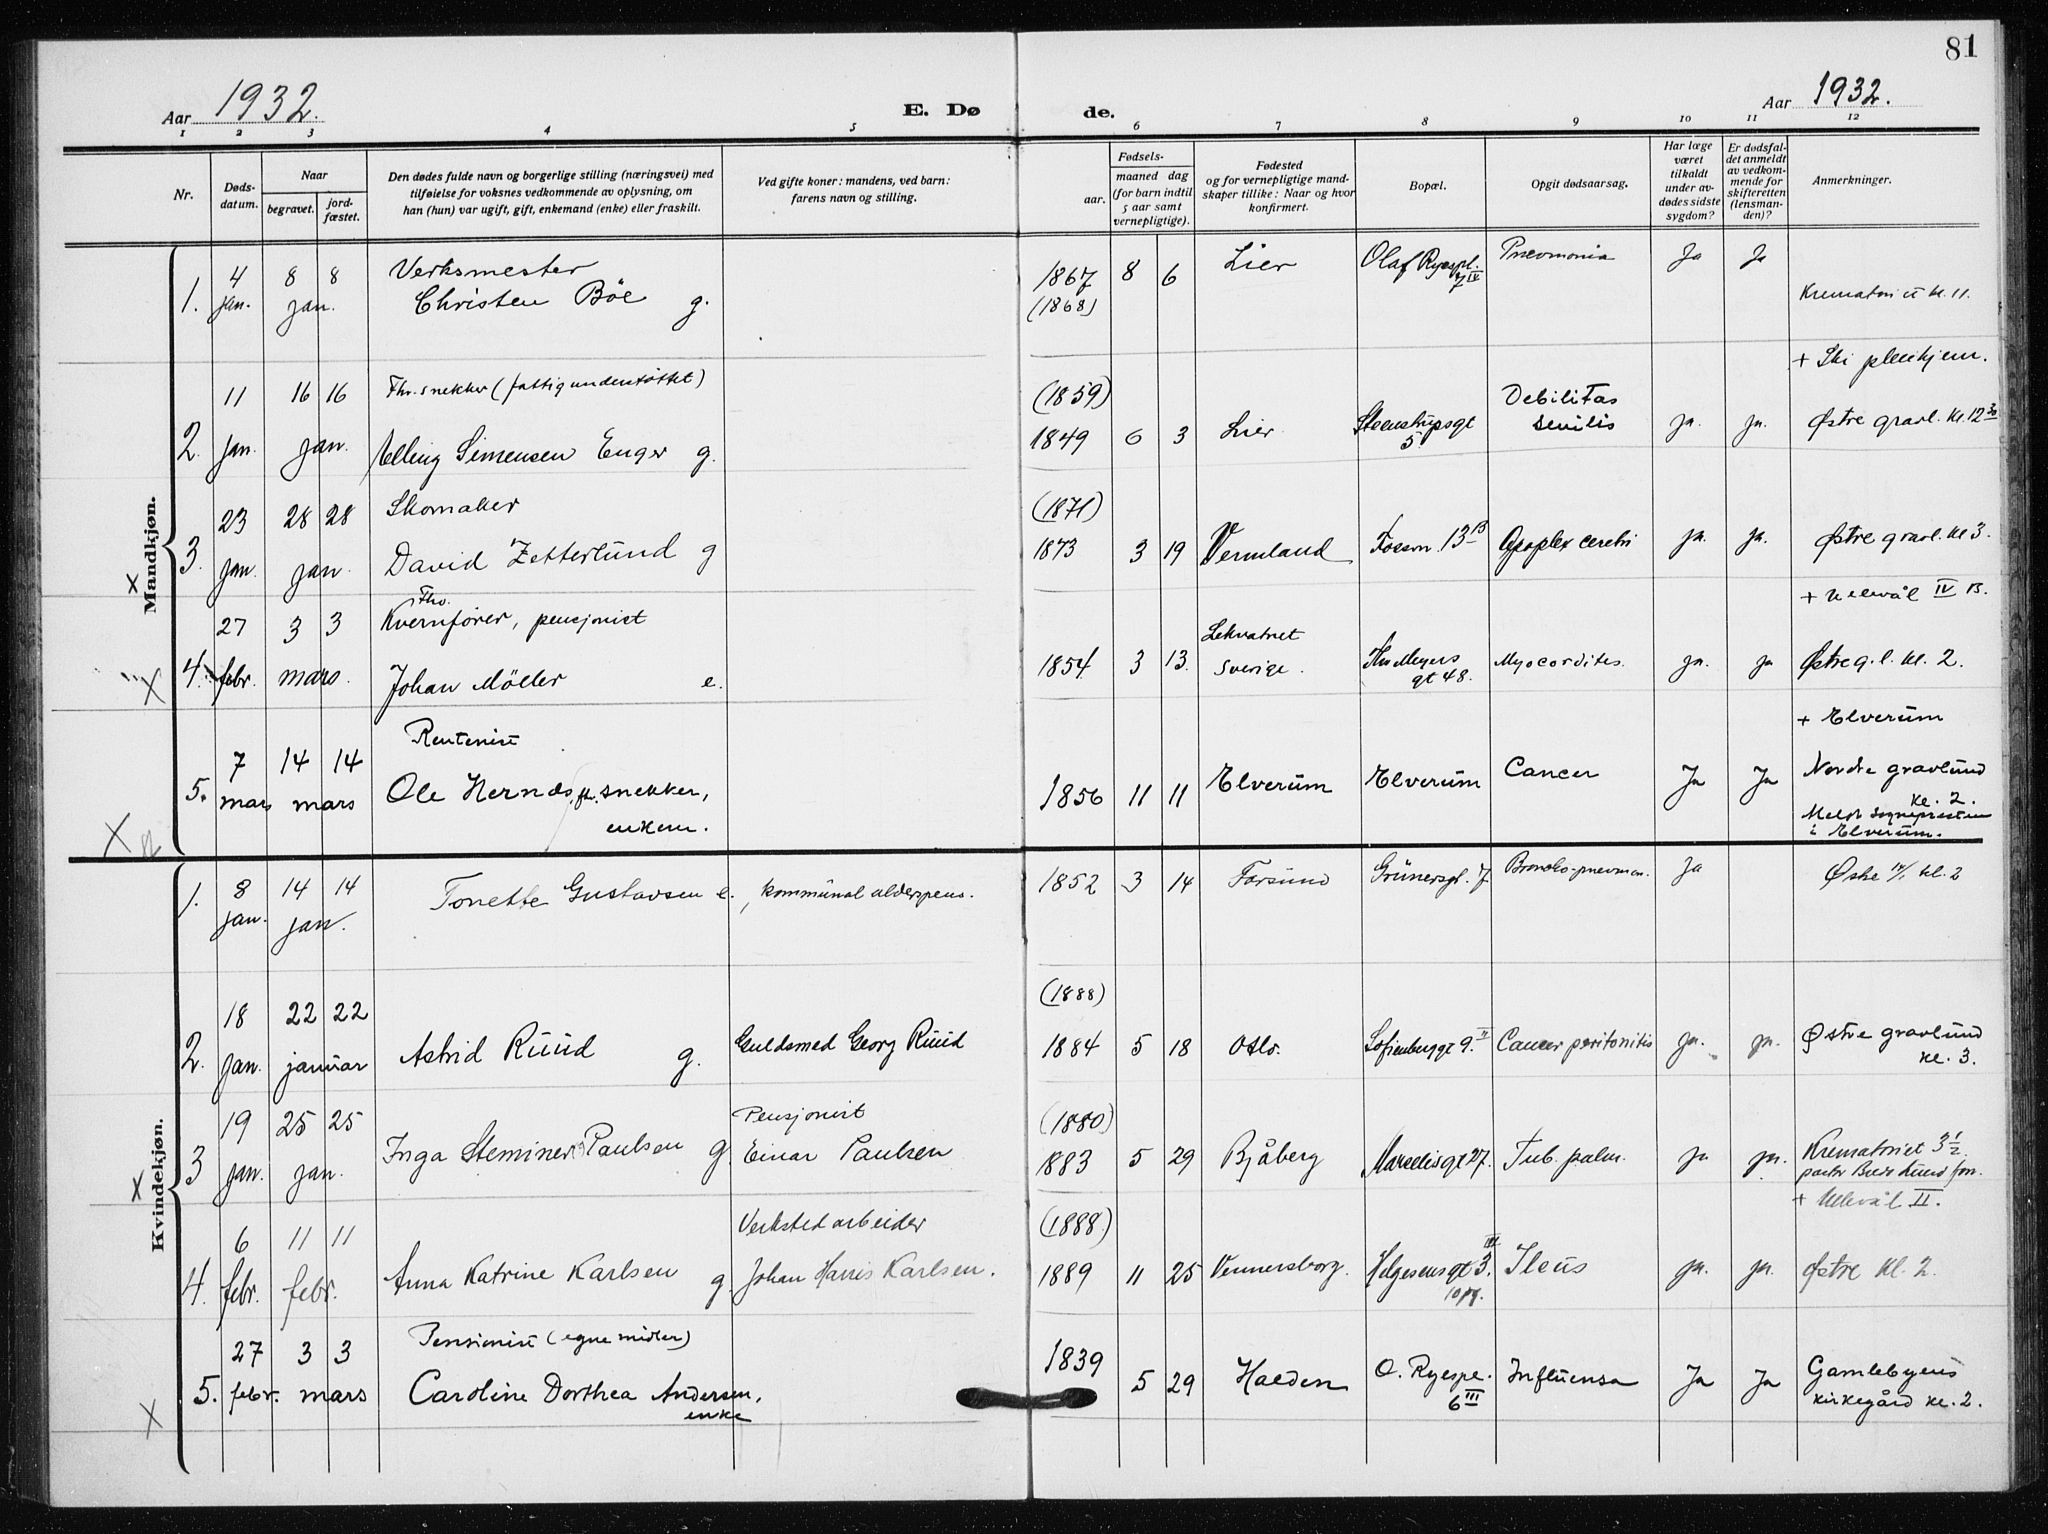 81
Aar 1932.
E. Døde.
Aar 1932.
1 2 3 4 5 6 7 8 9 10 11 12
Nr.
Døds-
datum.
Naar
begravet.
jord-
fæstet.
Den dødes fulde navn og borgerlige stilling (næringsvei) med
tilføielse for voksnes vedkommende av oplysning, om
han (hun) var ugift, gift, enkemand (enke) eller fraskilt.
Ved gifte koner: mandens, ved barn:
farens navn og stilling.
Fødsels-
aar. maaned dag
(for barn indtil
5 aar samt
vernepligtige).
Fødested
og for vernepligtige mand-
skaper tillike: Naar og hvor
konfirmert.
Bopæl.
Opgit dødsaarsag.
Har læge
været
tilkaldt
under av-
dødes sidste
sygdom?
Er dødsfal-
det anmeldt
av vedkom-
mende for
skifteretten
(lensman-
den)?
Anmerkninger.
Mandkjøn.
1. 4 jan. 8 8 jan.
Verksmester
Christen Böe g.
1867 (1868) 8 6 Lier Olaf Ryespl. 7 IV Pneumonia Ja Ja
Krematoriet kl. 11.
2. 11 jan. 16 16 jan.
Fhv. snekker (fattigunderstöttet)
Elling Simensen Enger g.
(1859) 1849 6 3 Lier Steenstrupsgt 5. Debilitas senilis ja. ja.
+ Ski pleiehjem.
Østre gravl. kl. 12 30
3. 23 jan. 28 28 jan.
Skomaker
David Zetterlund g
(1871) 1873 3 19 Vermland Fossv. 13 B Apoplex cerebri ja. ja.
Østre gravl. kl 3.
4. 27 febr. 3 3 mars.
Fhv.
Kvernfører, pensjonist
Johan Möller e.
1854 3 13. Lekvatnet Sverige. Thv Meyers gt 48. Myocorditis. ja. ja
+ Ullevål IV B.
Østre g.l. kl. 2.
5. 7 mars 14 14 mars
Rentenist
Ole Hernæs, fh. snekker,
enkem.
1856 11 11 Elverum Elverum Cancer Ja Ja
+ Elverum
Nordre gravlund
kl. 2.
Meldt sognepresten
i Elverum.
Kvindekjøn.
1. 8 jan. 14 14 jan.
Tonette Gustavsen e., kommunal alderspens.
1852 3 14 Farsund Grünersgt. 7 Broncho-pneumon. Ja
Østre 14/1 kl. 2
2. 18 jan. 22 22 januar
Astrid Ruud g. Guldsmed Georg Ruud
(1888) 1884 5 18 Oslo. Sofienberggt 9. II Cancer peritonitis ja. ja.
Østre gravlund
kl. 3.
3 19 jan. 25 25 jan.
Inga Steminer Paulsen g. Pensjonist
Einar Paulsen
(1880) 1883 5 29 Bjåberg Marselisgt 27. Tub. pulm. ja ja.
Krematoriet 3 1/2
pastor Brede Lund forr.
4. 6 febr. 11 11 febr.
Anna Katrine Karlsen g. Verkstedarbeider
Johan Harris Karlsen.
(1888) 1889 11 25 Vennersborg. Helgesensgt 3. III opg. Ileus ja. ja.
+ Ullevål II.
Østre kl. 2.
5. 27 febr. 3 3 mars
Pensionist (egne midler)
Caroline Dorthea Andersen,
enke
1839 5 29 Halden O. Ryespl. 6 III Influensa Ja Ja
Gamlebyens
kirkegård kl. 2.